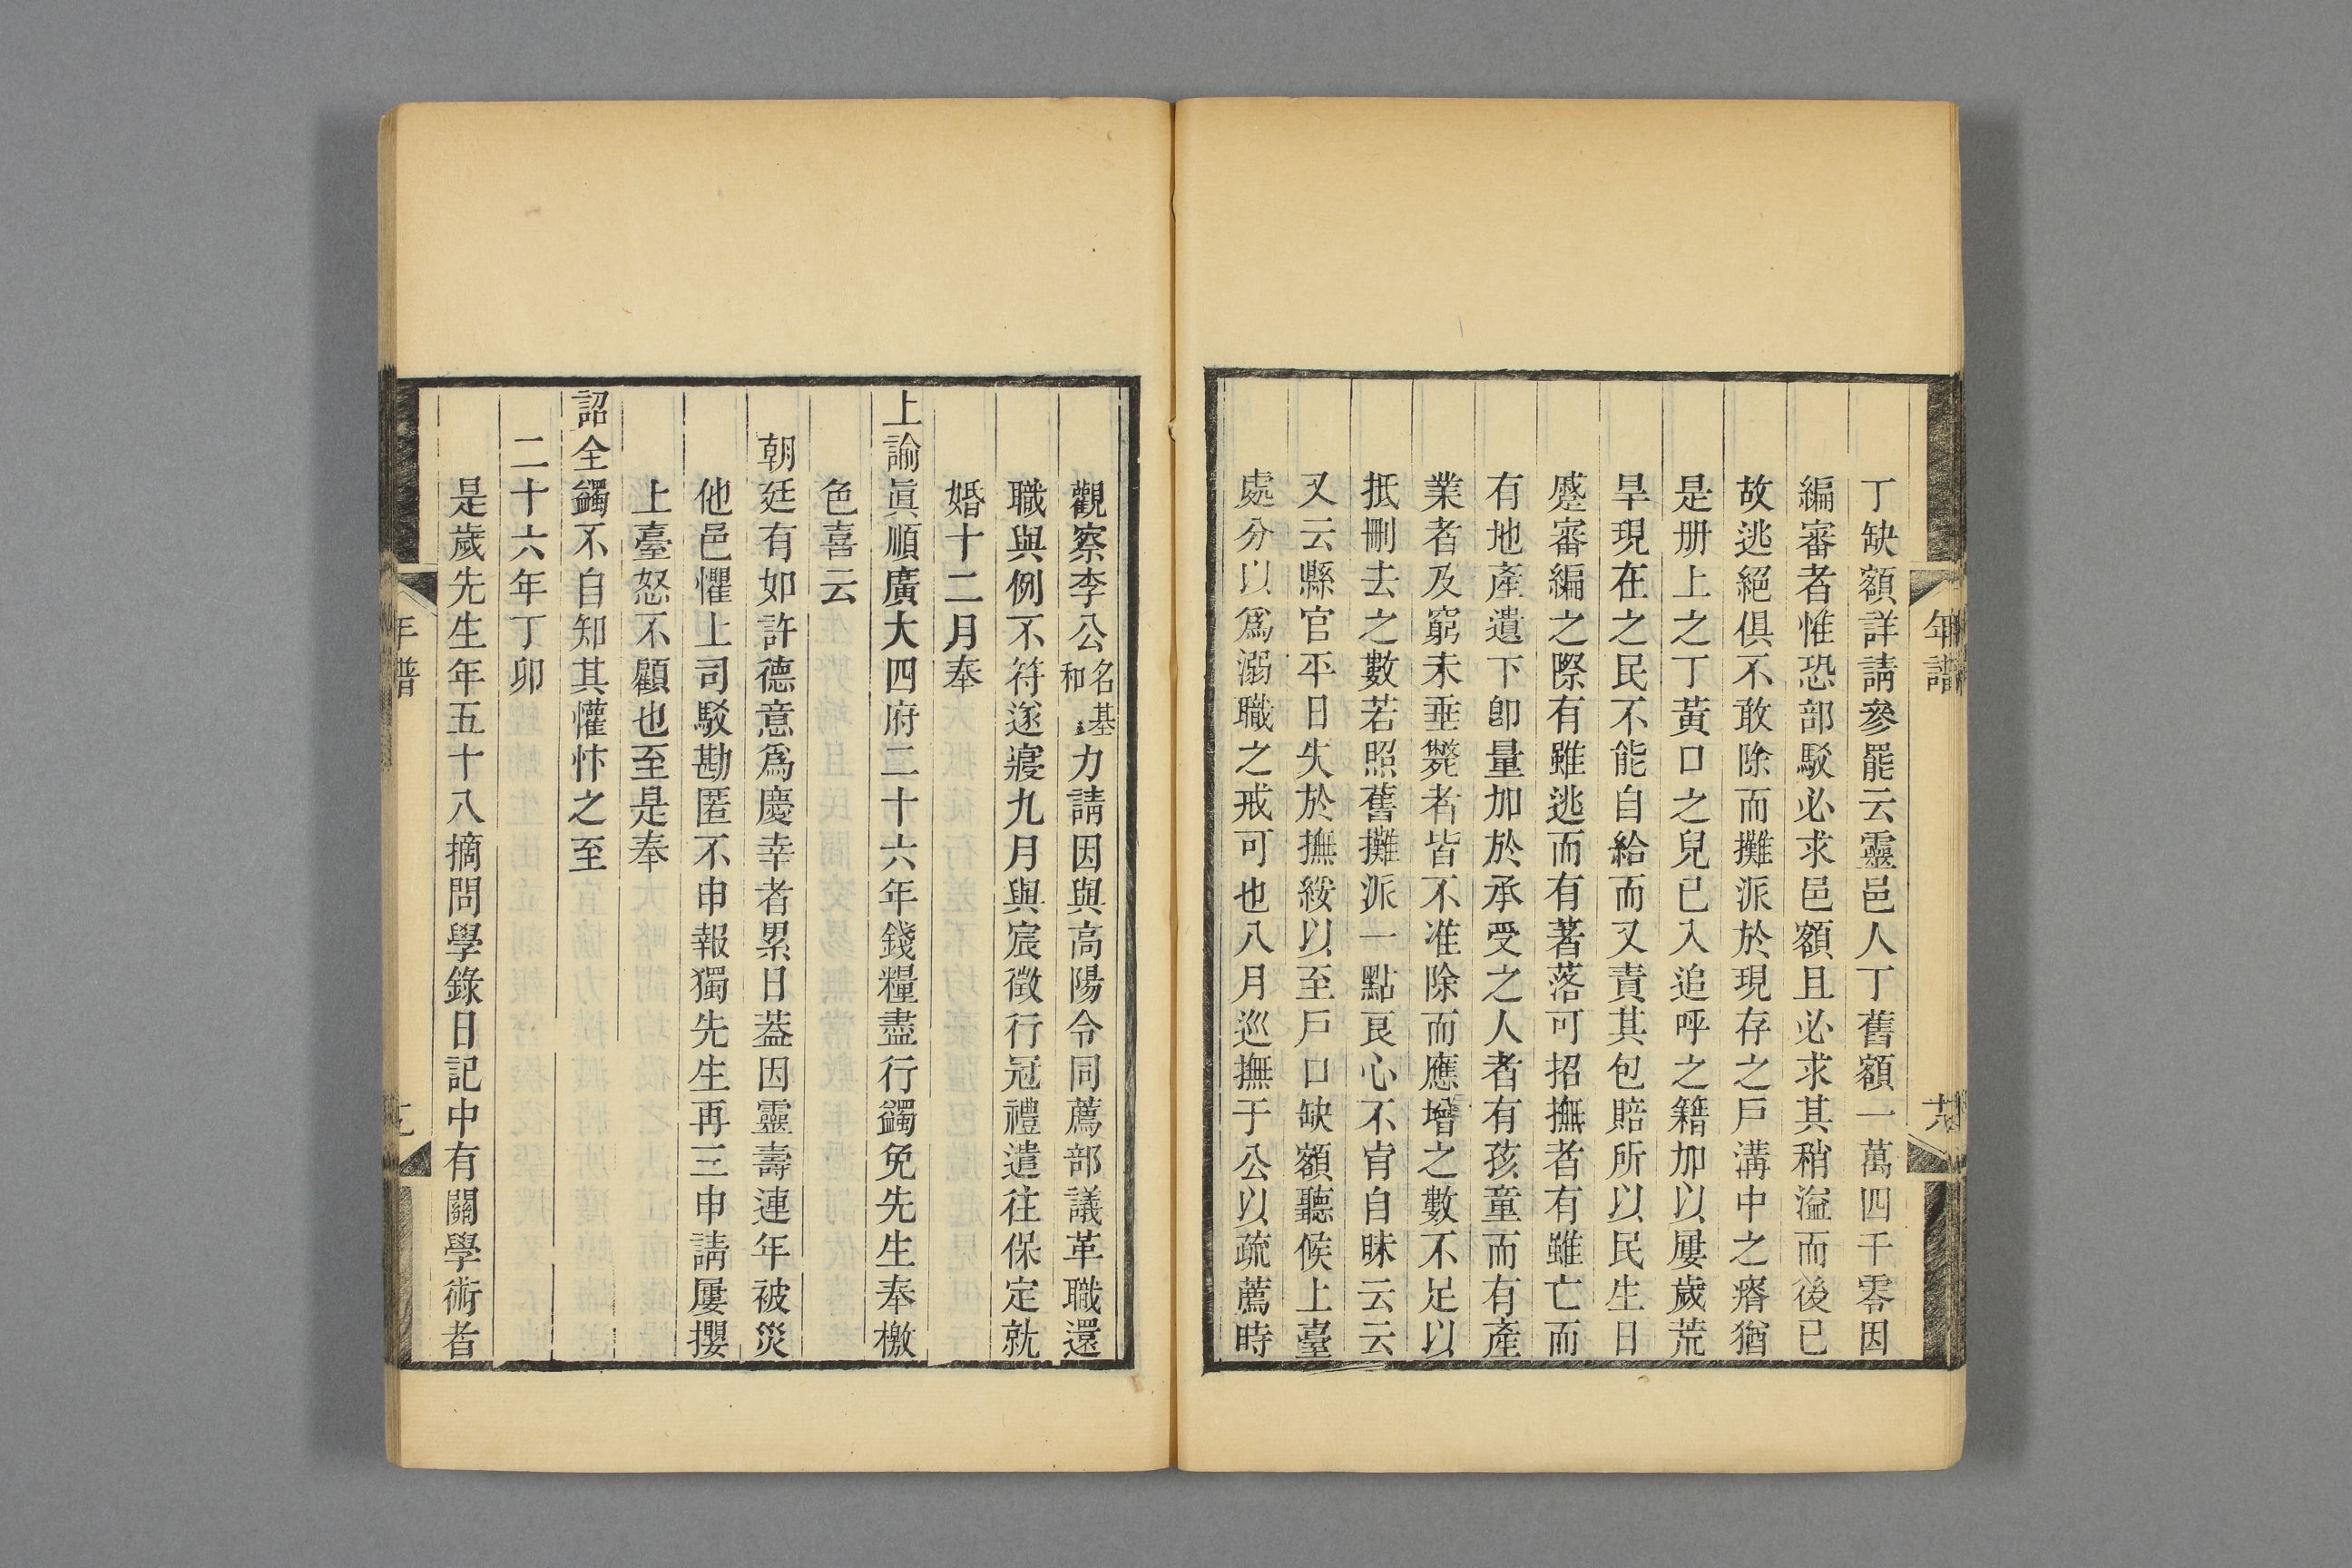 年譜
丁缺額詳請參罷云靈邑人丁舊額一萬四千零因
編審者惟恐部駁必求邑額且必求其稍溢而後已
故逃絕俱不敢除而攤派於現存之戸溝中之瘠猶
是册上之丁黃口之兒已入追呼之籍加以屢歲荒
旱現在之民不能自給而又責其包賠所以民生日
蹙審編之際有雖逃而有著落可招撫者有雖亡而
有地產遺下卽量加於承受之人者有孩童而有產
業者及窮未垂斃者皆不准除而應增之數不足以
抵刪去之數若照舊攤派一點良心不肯自昧云云
又云縣官平日失於撫綏以至戸口缺額聽候上臺
處分以爲溺職之戒可也八月巡撫于公以疏薦時
觀察李公名基和力請因與高陽令同薦部議革職還
職與例不符遂寢九月與宸徵行冠禮遣往保定就
婚十二月奉
上諭眞順廣大四府二十六年錢糧盡行蠲免先生奉檄
色喜云
朝廷有如許德意爲慶幸者累日葢因靈壽連年被災
他邑懼上司駁勘匿不申報獨先生再三申請屢攖
上臺怒不顧也至是奉
詔全蠲不自知其懽忭之至
二十六年丁卯
是歲先生年五十八摘問學錄日記中有關學術者
年譜